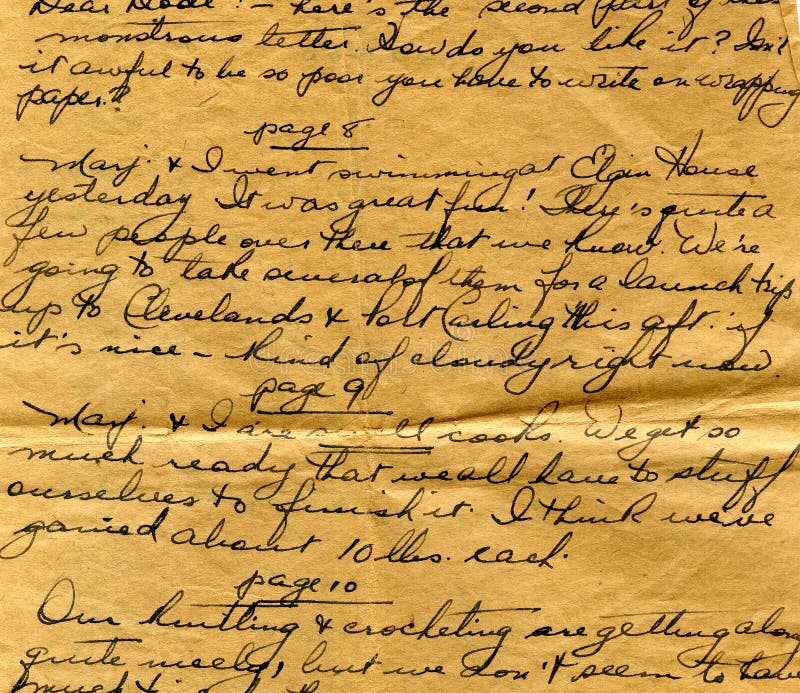 Dear Dode! - here's the second part of this
monstrous letter. How do you like it? Isn't
it awful to be so poor you have to write on wrapping
paper?
page 8
Marj. & I went swimming at Elgin House
yesterday It was great fun! There's quite a
few people over there that we know. We're
going to take several of them for a launch trip
up to Clevelands & Port Carling this aft. if
it's nice - kind of cloudy right now.
page 9
Marj. & I are swell cooks. We get so
much ready that we all have to stuff
ourselves to finish it. I think we've
gained about 10 lbs. each.
page 10
Our knitting & crocheting are getting along
quite nicely, but we don't seem to have
much